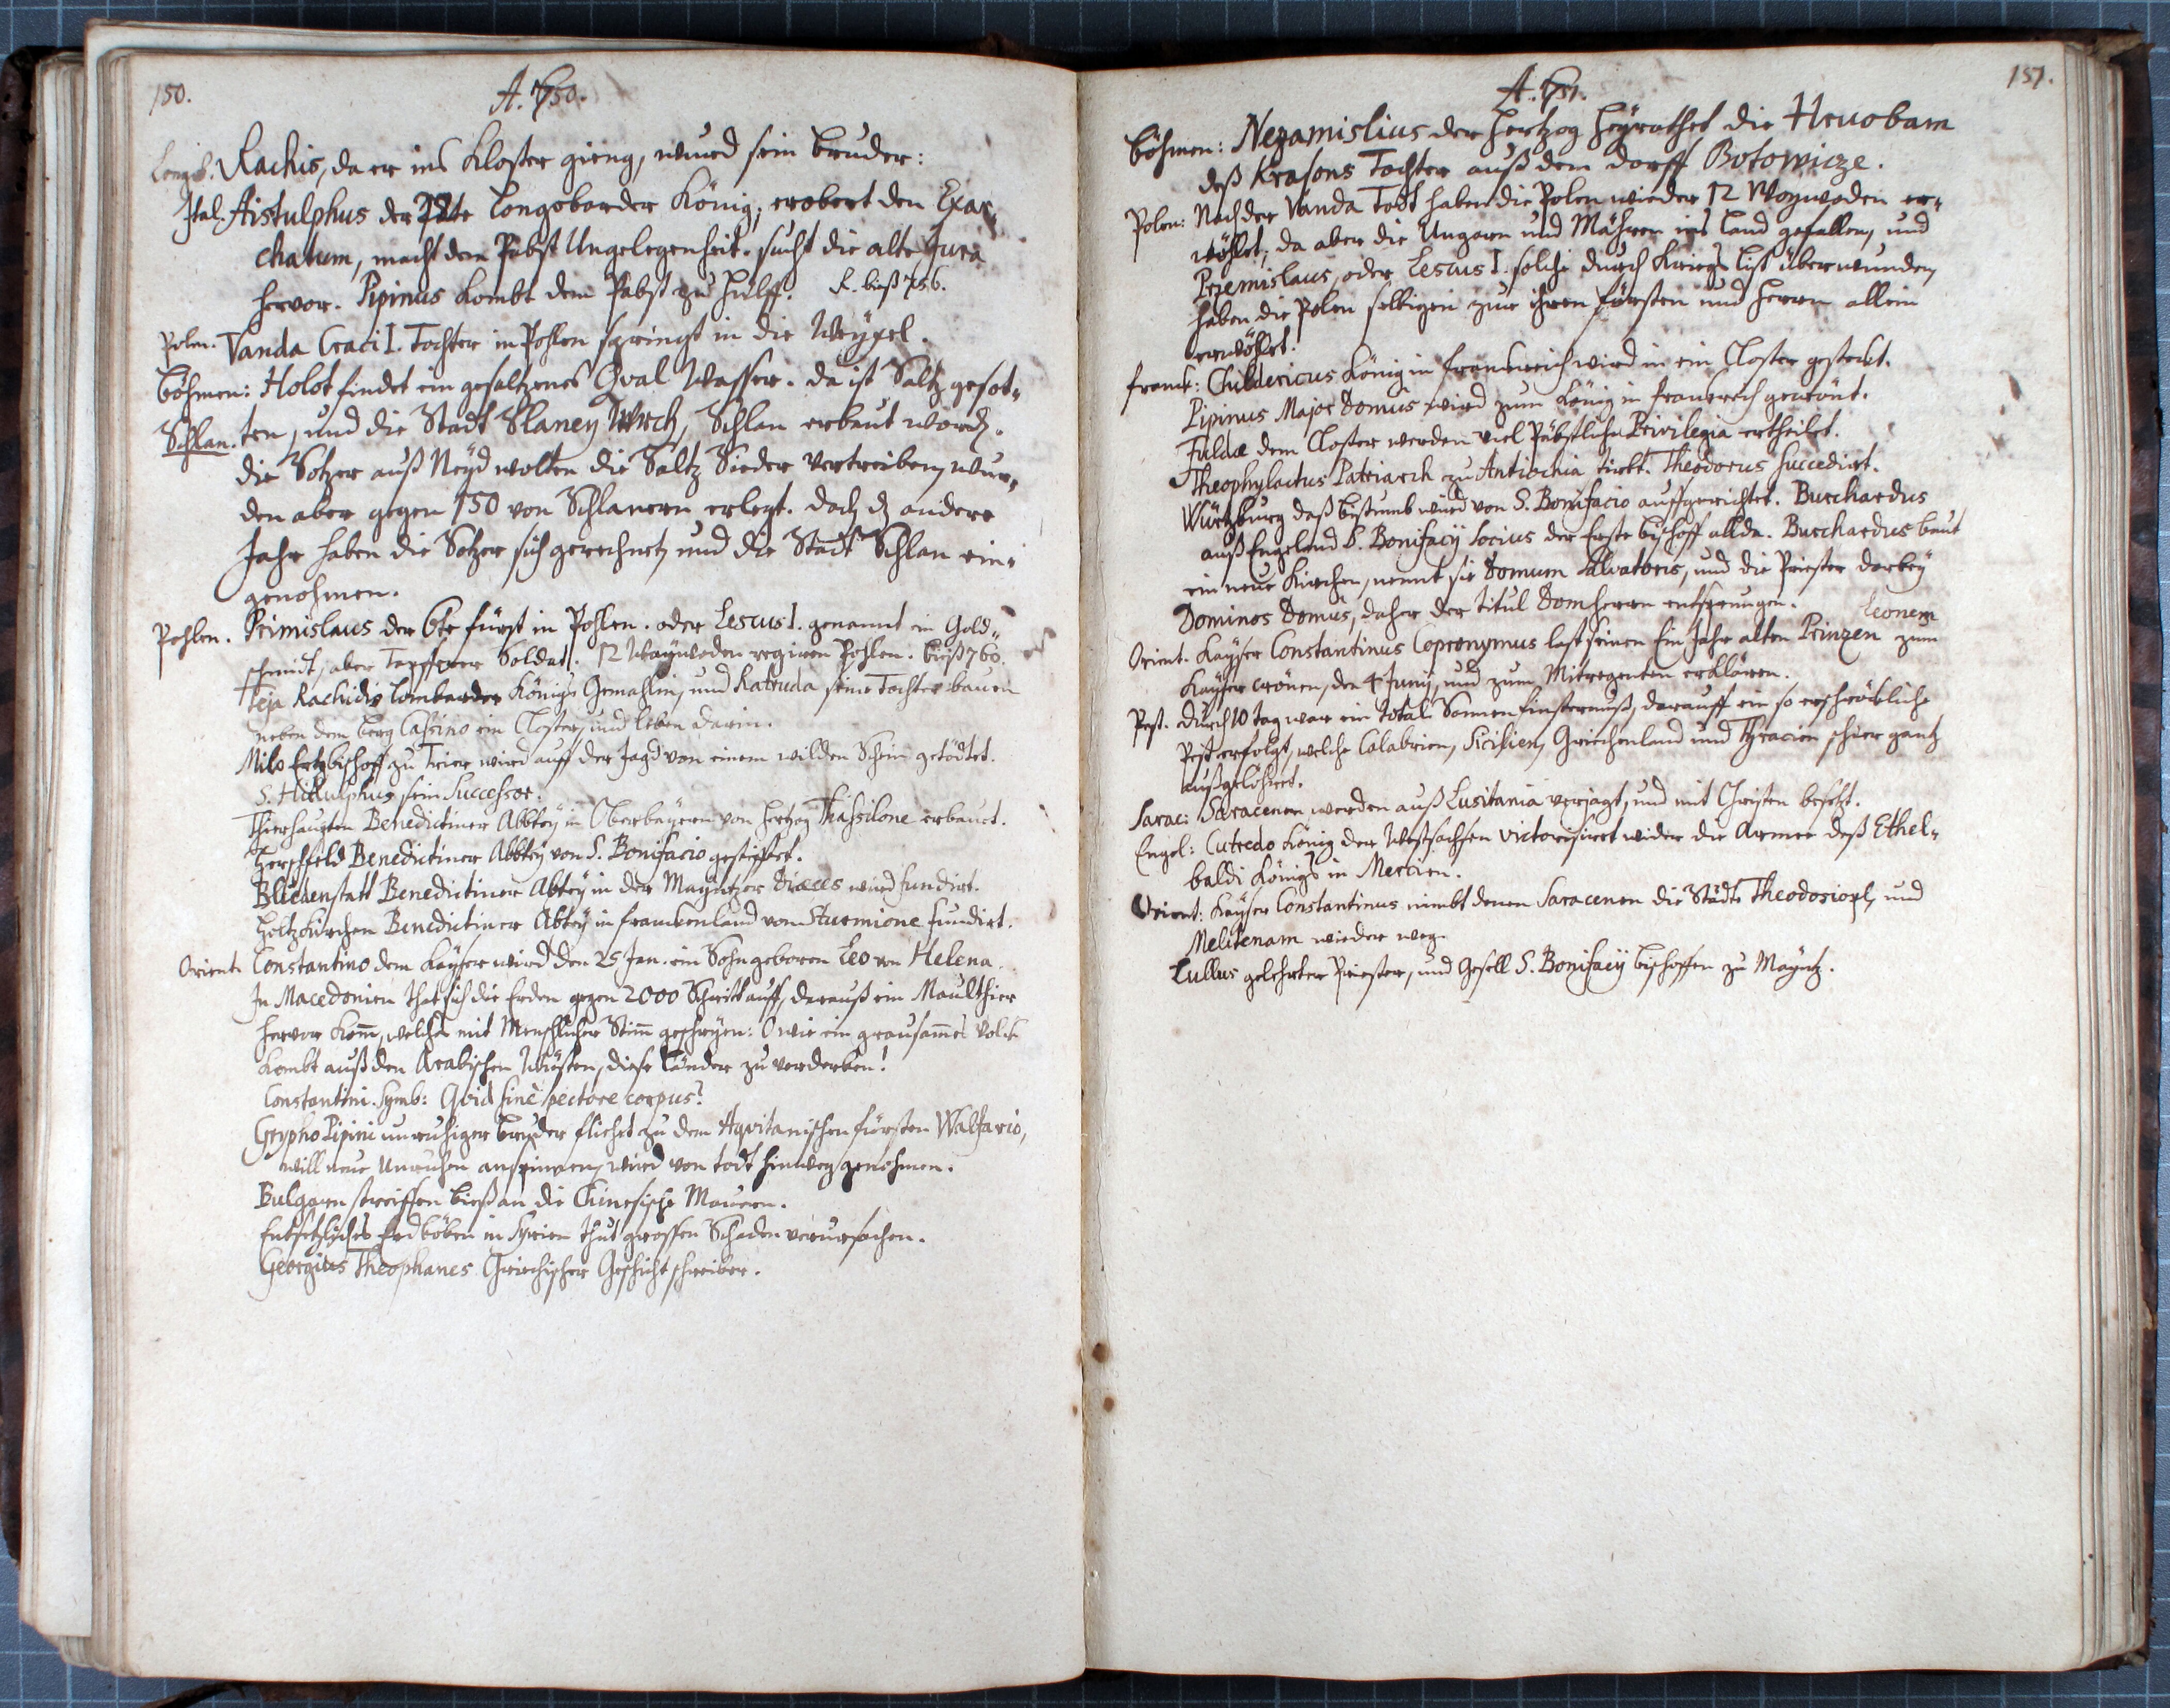 150.
A. 750.
Longob. Rachis, da er ins Kloster gieng, wurd sein bruder:
Ital. Aistulphus der 22te Longobarder König, erobert den Exar„
chatum, macht dem Pabst Ungelegenheit. sucht die alte Jura
hervor. Pipinus kombt dem Pabst zu hülff. R. bieß 756.
Polen. Vanda Craci I. Tochter in Pohlen springt in die Weyxel.
böhmen: Holot findet ein gesaltzenes Qval Wasser. da ist Saltz gesot„
Schlan. ten, und die Stadt Slaney Wrch, Schlan erbaut word.
die Sotzer auß Neyd wolten die Saltz Sieder vertreiben, wur„
den aber gegen 150 von Schlanern erlegt. doch dz andere
Jahr haben die Sotzer sich gerechnet, und die Stadt Schlan ein„
genohmen.
Pohlen. Primislaus der 6te fürst in Pohlen. oder Lescus I. genannt ein Gold„
schmidt, aber Tapfferer Soldat. 12 Waywoden regiren Pohlen. bieß 760.
Teja Rachidis Lombarder Königs Gemahlin, und Ratruda seine Tochter bauen
neben dem berg Cassino ein Closter, und leben darin.
Milo Ertzbischoff zu Trier wird auff der Jagd von einem wilden Schwein getödtet.
S. Hidulphus sein Successor.
Thierhaupten Benedictiner Abbtey in Oberbayern von Hertzog Thassilone erbauet.
Herschfeld Benedictiner Abbtey von S. Bonifacio gestifftet.
Bliedenstatt Benedictiner Abtey in der Mayntzer Diœces wird fundirt.
Holtzkirchen Benedictiner Abtey in Frankenland von Sturmione fundirt.
Orient. Constantino dem Kayser wird den 25 Jan. ein Sohn geboren Leo von Helena.
In Macedonien that sich die Erden gegen 2000 Schritt auff, darauß ein Maulthier
hervor kom, welches mit Menschlicher Stim geschryen: O wie ein grausammes Volck
kombt auß den Arabischen Wüsten, diese Länder zu verderben!
Constantini. Symb: Qvid sine pectore corpus?
Grypho Pipini unruhiger bruder fliehet zu dem Aqvitanischen fürsten Walfario,
will neue Unruhen anspinnen, wird von todt hinweg genohmen.
Bulgarn streiffen bieß an die Chinesische Mauern.
Entsetzliches Erdböben in Syrien thut grossen Schaden verursachen.
Georgius Theophanes Griechischer Geschichtschreiber.
151.
A. 751.
böhmen: Nezamislius der Hertzog heyrathet die Hruobam
deß Krasons Tochter auß dem Dorff Botowicze.
Polen: Nach der Vanda Todt haben die Polen wieder 12 Woywoden er„
wöhlet, da aber die Ungarn und Mähren ins Land gefallen, und
Przemislaus, oder Lescus I. solche durch Kriegs list überwunden,
haben die Polen selbigen zum ihren fürsten und Herrn allein
erwöhlet.
franck: Childericus König in Franckreich wird in ein Closter gesteckt.
Pipinus Major Domus wird zum König in Franckreich gecrönt.
Fuldæ dem Closter werden viel Päbstliche Privilegia ertheilet.
Theophylactus Patriarch zu Antiochia stirbt. Theodorus succedirt.
Würtzburg daß bistumb wird von S. Bonifacio auffgerichtet. Burchardus
auß Engeland S. Bonifacij Socius der Erste bischoff allda. Burchardus baut
ein neue Kirchen, nennt sie Domum Salvatoris, und die Priester darbey
Dominos Domus, daher der titul Domherrn entsprungen.
Leonem
Orient. Kayser Constantinus Copronymus last seinen Ein Jahr alten Prinzen zum
Kayser crönen, den 4 Junij, und zum Mitregenten erklären.
Pest. durch 10 tag war ein total Sonnen finsternuß, darauff ein so erschröckliche
Pest erfolgt, welche Calabrien, Sicilien, Griechenland und Thracien schier gantz
außgelöhret.
Sarac: Saracenen werden auß Lusitania verjagt, und mit Christen besetzt.
Engel: Cutredo König der Westsachsen victorisiret wider die Armee deß Ethel„
baldi Königs in Mercien.
Orient: Kayser Constantinus nimbt denen Saracenen die Städte Theodosiopl, und
Melitenam wieder weg.
Lullus gelehrter Priester, und Gesell S. Bonifacij bischoffen zu Mayntz.